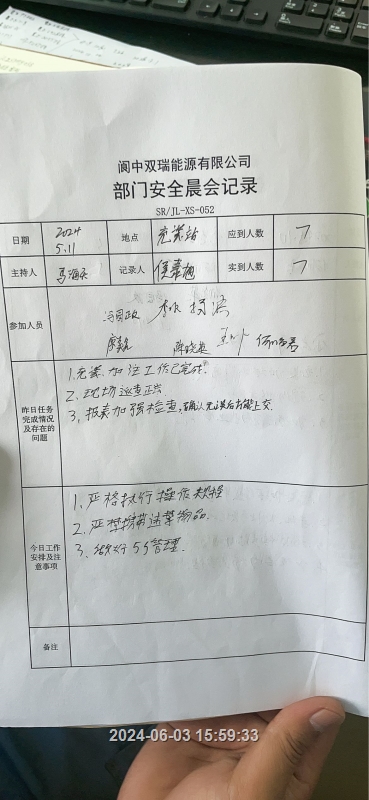 阆中双瑞能源有限公司
部门安全晨会记录
SR/JL-XS-052
日期 2024 5.11 地点 充装站 应到人数 7
主持人 记录人 实到人数 7
参加人员
昨日任务完成情况及存在的问题
1.充装.加注工作已完成.
2.现场巡查正常
3.报表加强检查,确认无误后才能上交.
今日工作安排及注意事项
1.严格执行操作规程
2.严禁携带违禁物品.
3.做好5S管理.
备注
2024-06-03 15:59:33